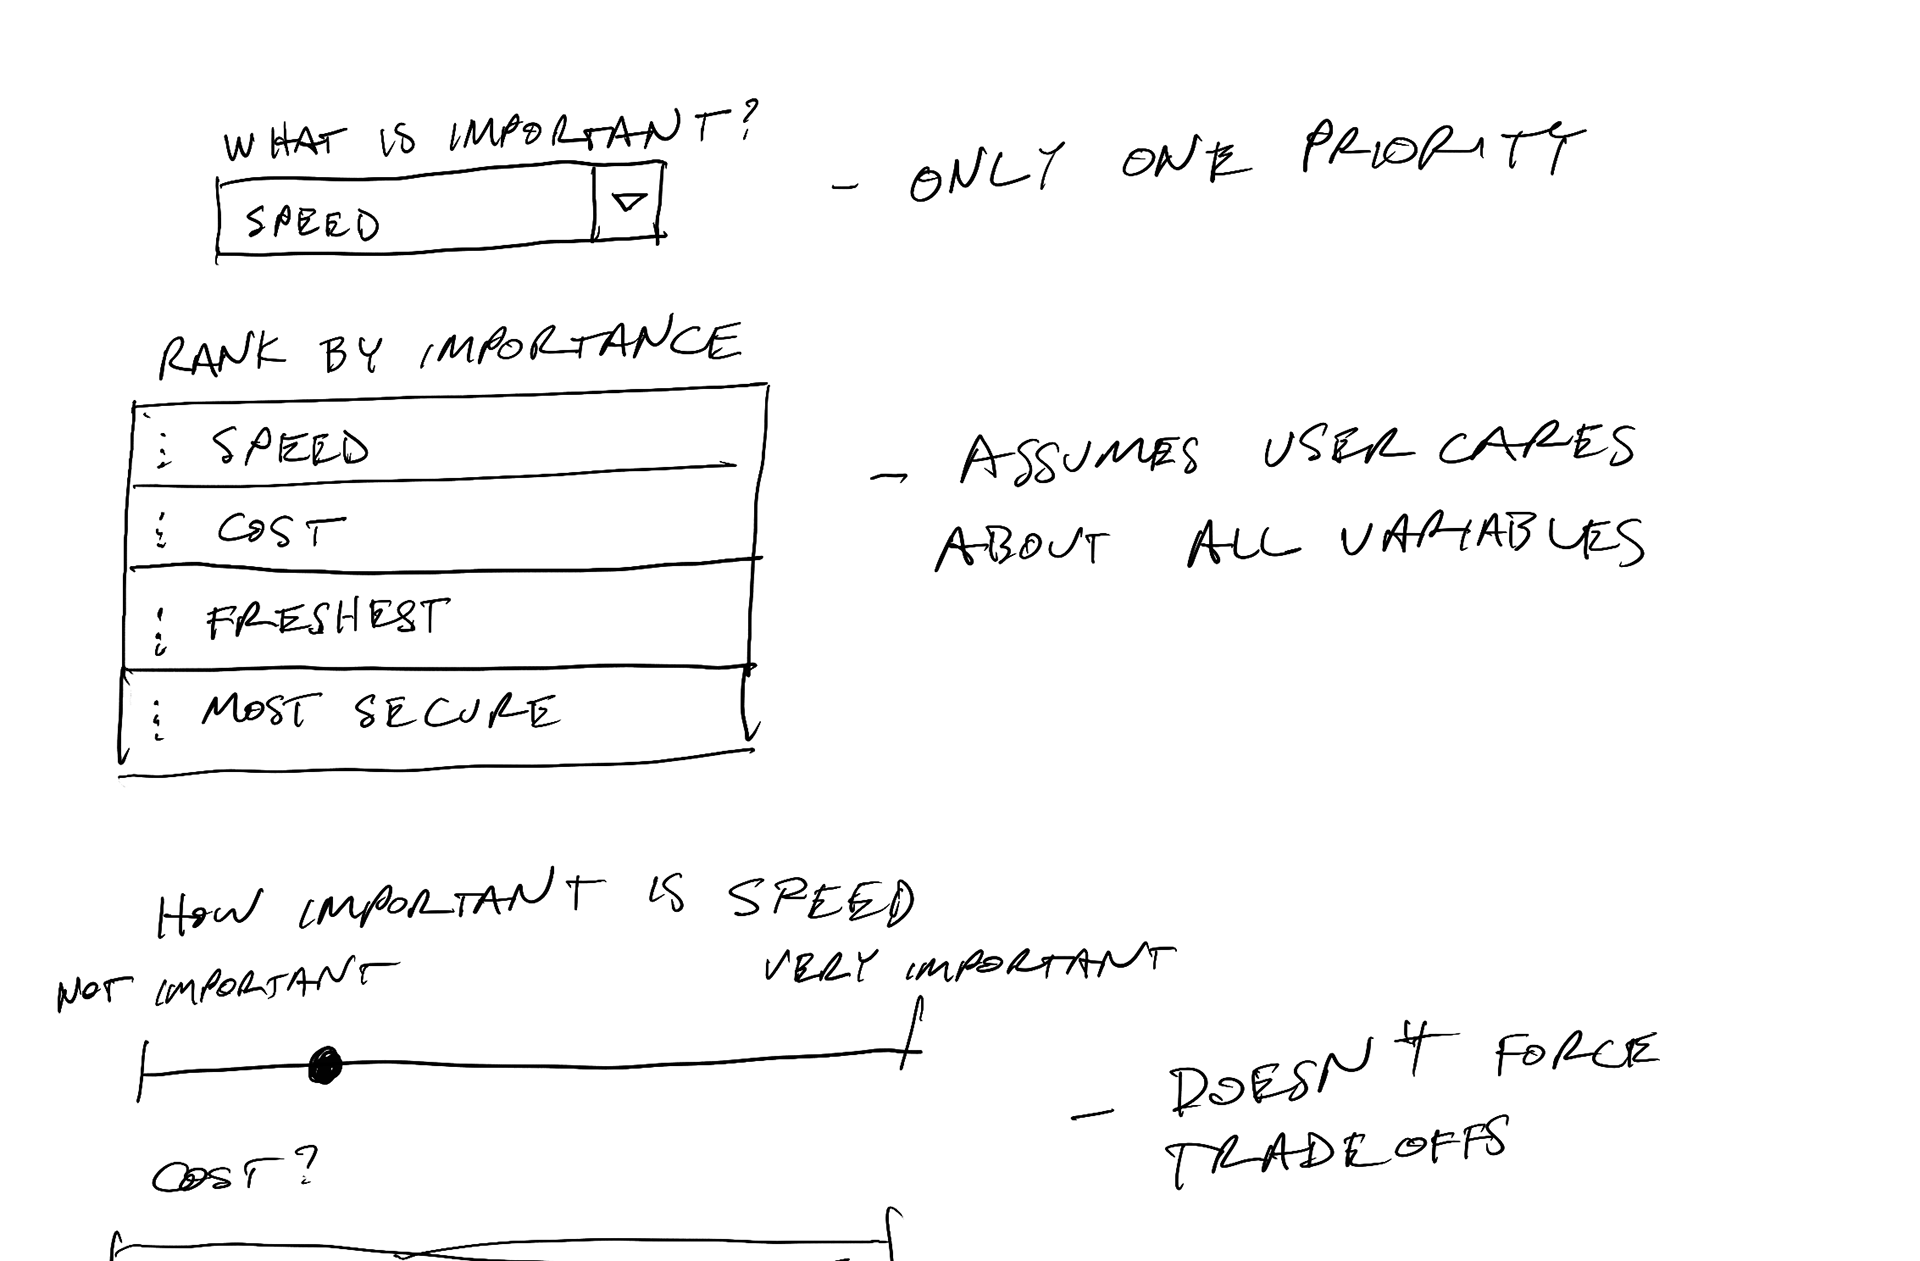 WHAT IS IMPORTANT?
SPEED
- ONLY ONE PRIORITY
RANK BY IMPORTANCE
SPEED
COST
FRESHEST
MOST SECURE
- ASSUMES USER CARES
ABOUT ALL VARIABLES
HOW IMPORTANT IS SPEED
NOT IMPORTANT
VERY IMPORTANT
- DOESN'T FORCE
TRADEOFFS
COST?